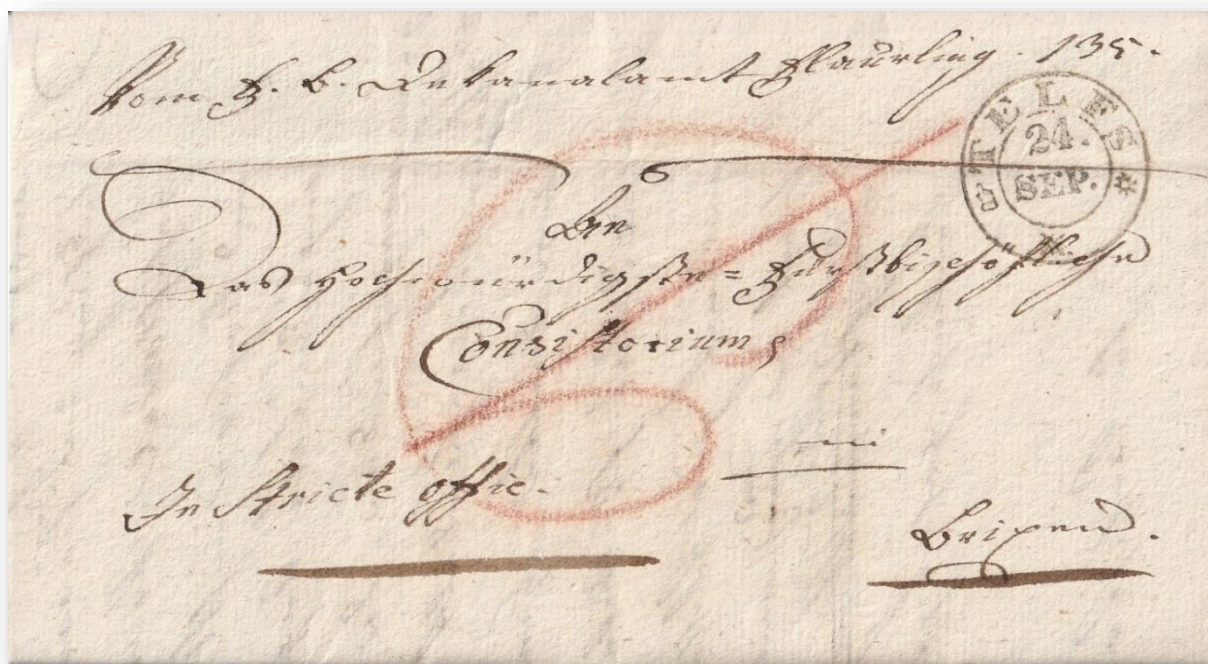 Vom F. B. Dekanalamt Flaurling. 135.
TELFS
24.
SEP.
An
Das Hochwürdigste = Fürstbischöfliche
Consistorium
in
Brixen.
In Stricte offic.